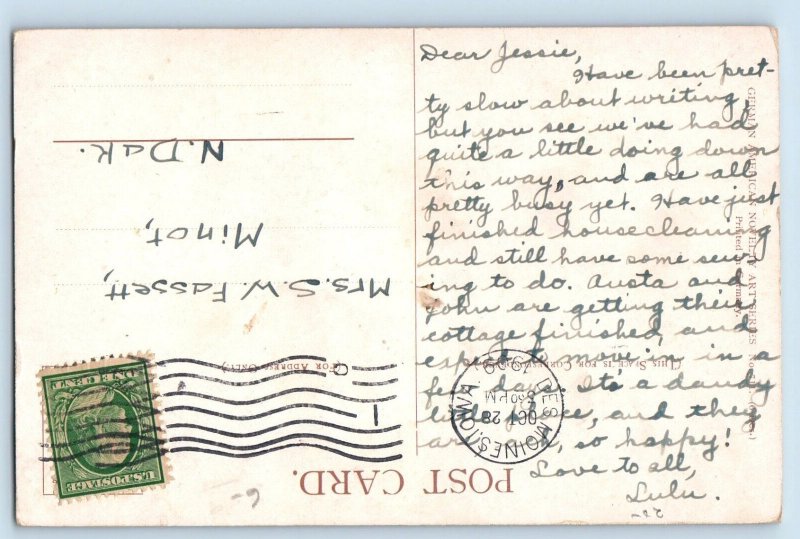 Dear Jessie,
Have been pret-
ty slow about writing,
but you see we've had
quite a little doing down
this way, and are all
pretty busy yet. Have just
finished housecleaning
and still have some sew-
ing to do. Austa and
John are getting their
cottage finished, and
expect to move in in a
few days. Its a dandy
little place, and they
are so, so happy!
Love to all,
Lulu.
Mrs. S. W. Fassett,
Minot,
N. Dak.
POST CARD.
(THIS SPACE IS FOR CORRESPONDENCE
(FOR ADDRESS ONLY.)
GERMAN AMERICAN NOVELTY ART SERIES No.
Printed in Germany.
DES MOINES, IOWA
OCT 28
30 PM
1
U.S. POSTAGE
ONE CENT
22-